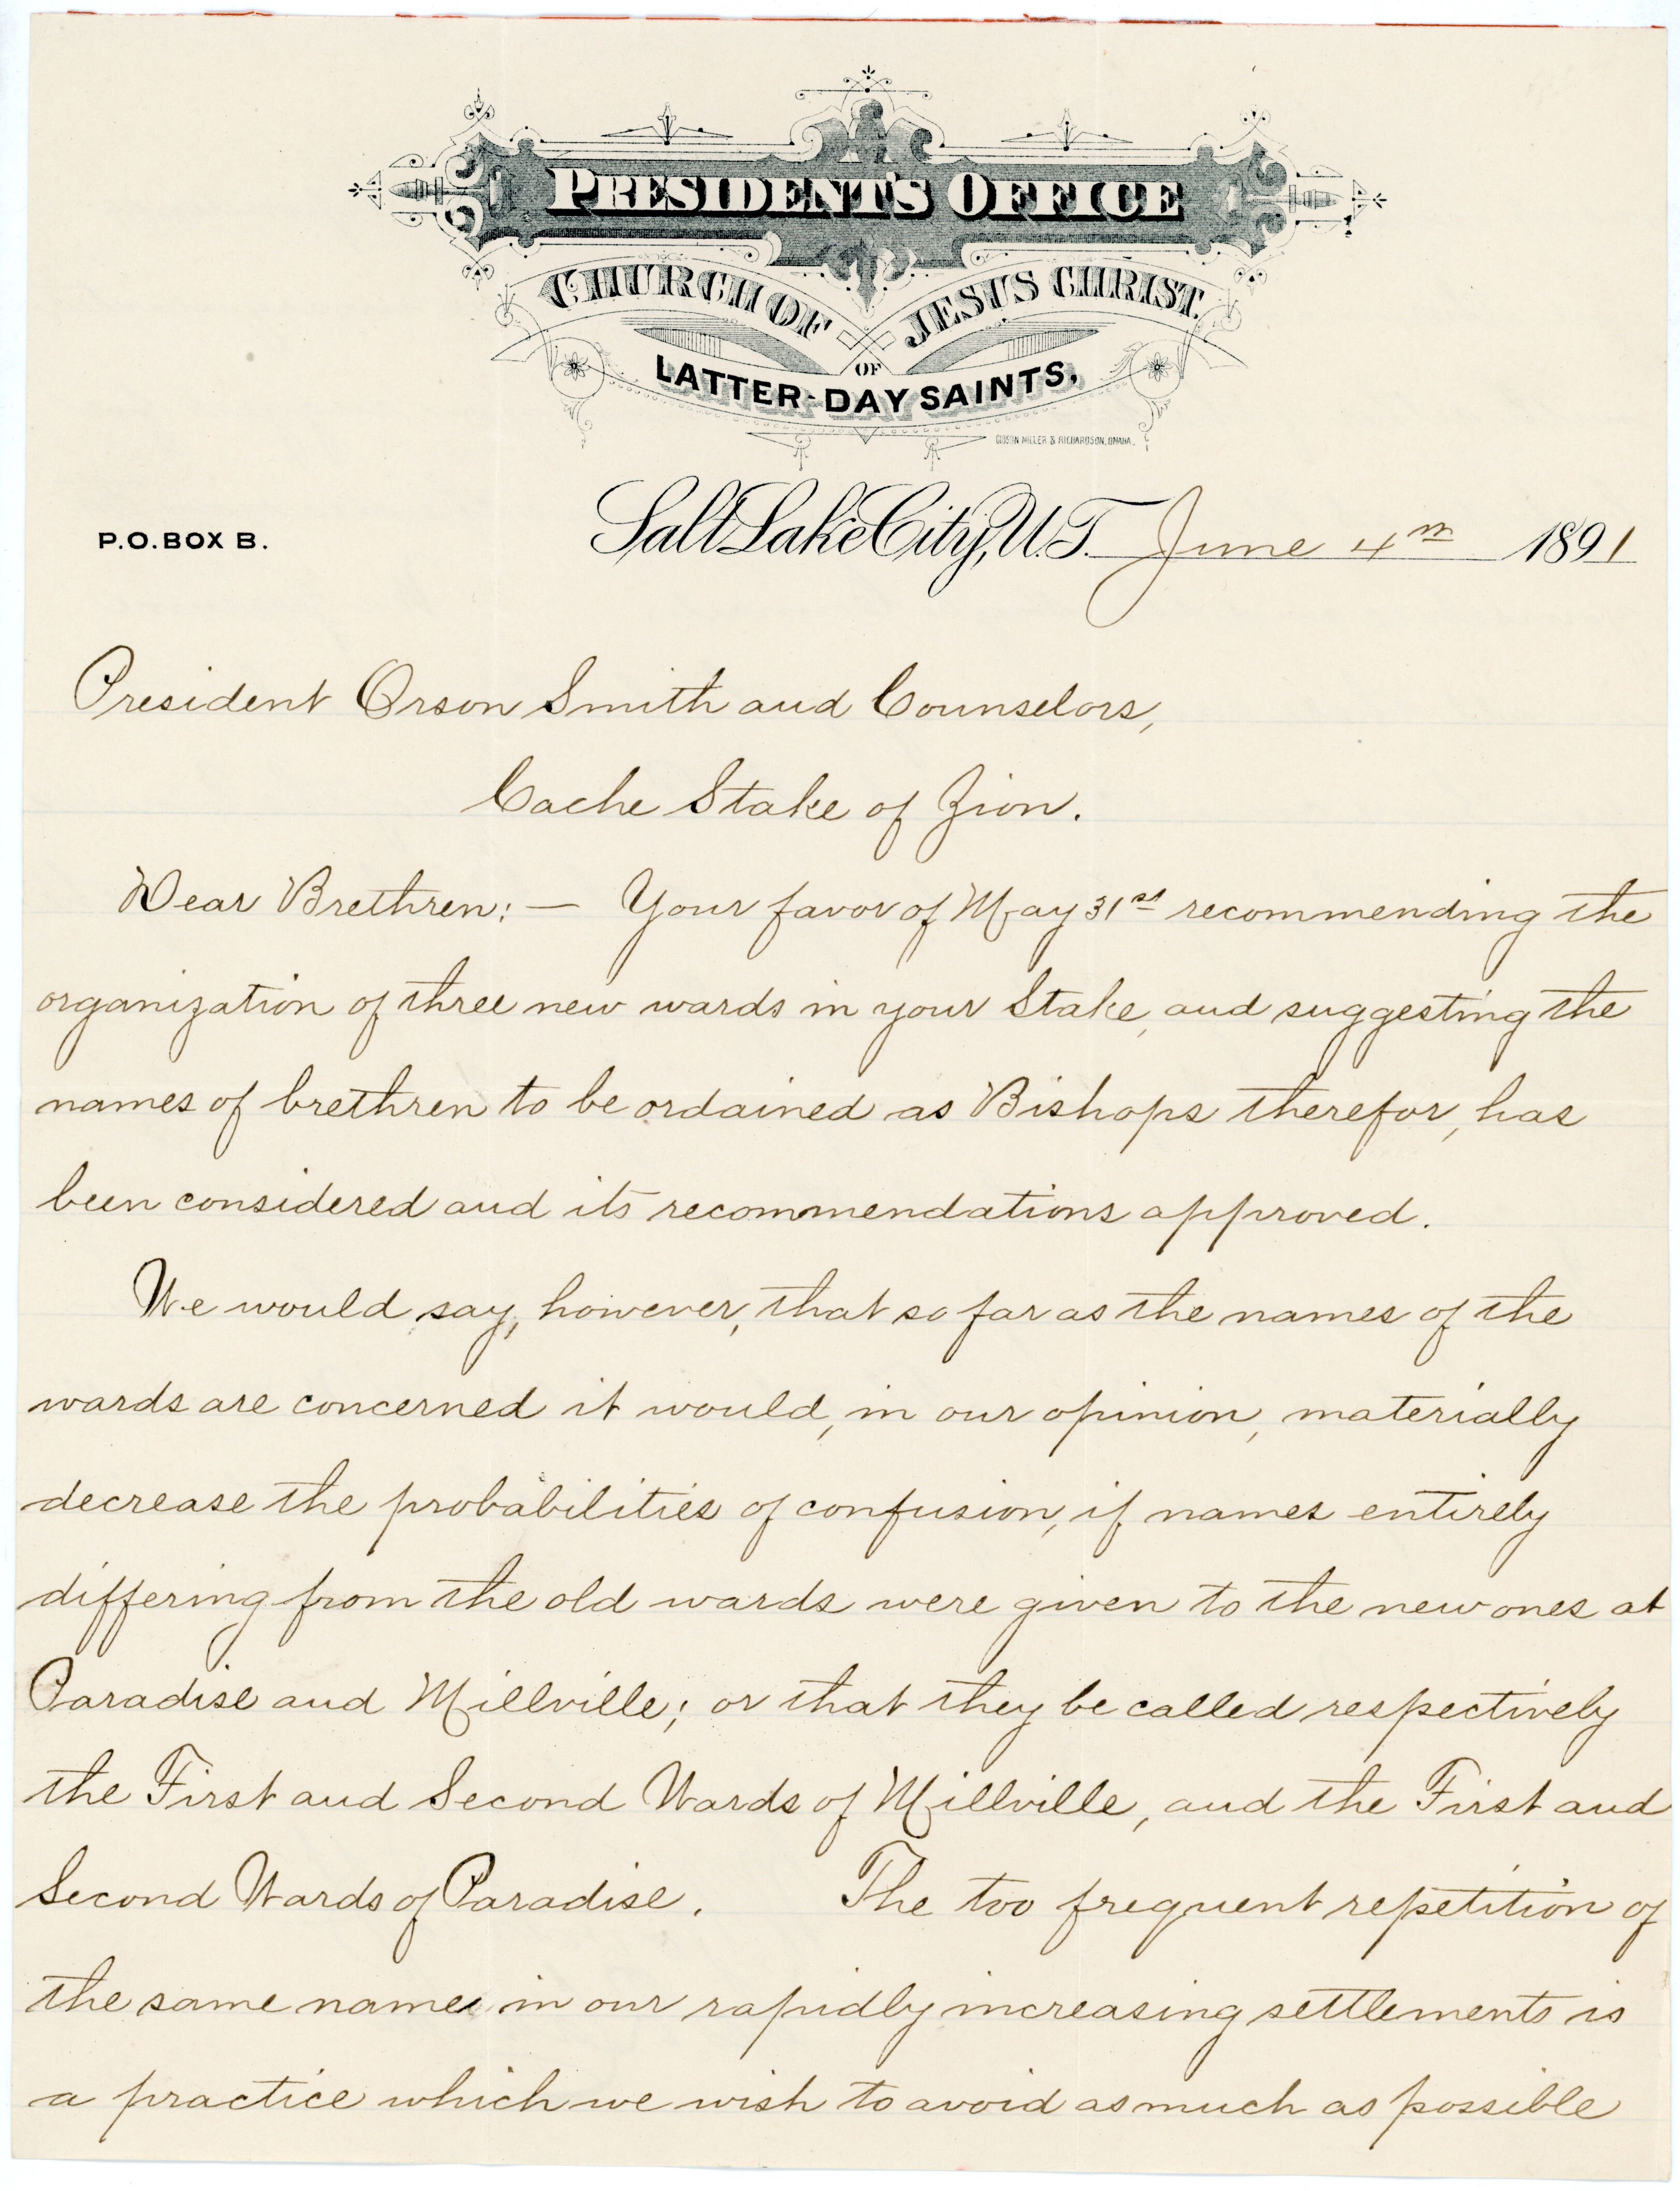 PRESIDENT'S OFFICE
CHURCH OF JESUS CHRIST
OF
LATTER-DAY SAINTS,
GIBSON MILLER & RICHARDSON, OMAHA.
P.O. BOX B.
Salt Lake City, U.T. June 4th 1891
President Orson Smith and Counselors,
Cache Stake of Zion.
Dear Brethren: — Your favor of May 31st recommending the
organization of three new wards in your Stake, and suggesting the
names of brethren to be ordained as Bishops therefor, has
been considered and its recommendations approved.
We would say, however, that so far as the names of the
wards are concerned it would, in our opinion, materially
decrease the probabilities of confusion, if names entirely
differing from the old wards were given to the new ones at
Paradise and Millville; or that they be called respectively
the First and Second Wards of Millville, and the First and
Second Wards of Paradise. The too frequent repetition of
the same names in our rapidly increasing settlements is
a practice which we wish to avoid as much as possible